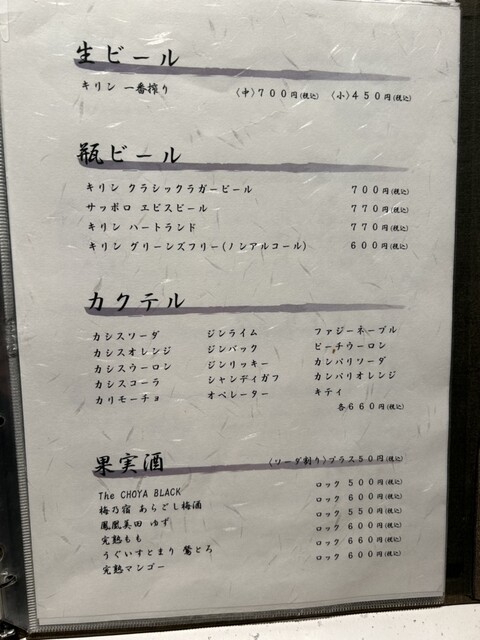 生ビール
キリン 一番搾り 〈中〉700円(税込) 〈小〉450円(税込)
瓶ビール
キリン クラシックラガービール 700円(税込)
サッポロ エビスビール 770円(税込)
キリン ハートランド 770円(税込)
キリン グリーンズフリー(ノンアルコール) 600円(税込)
カクテル
カシスソーダ ジンライム ファジーネーブル
カシスオレンジ ジンバック ピーチウーロン
カシスウーロン ジンリッキー カンパリソーダ
カシスコーラ シャンディガフ カンパリオレンジ
カリモーチョ オペレーター キティ
各660円(税込)
果実酒 〈ソーダ割り〉プラス50円(税込)
The CHOYA BLACK ロック 500円(税込)
梅乃宿 あらごし梅酒 ロック 600円(税込)
鳳凰美田 ゆず ロック 550円(税込)
完熟もも ロック 600円(税込)
うぐいすとまり 鶯とろ ロック 660円(税込)
完熟マンゴー ロック 600円(税込)